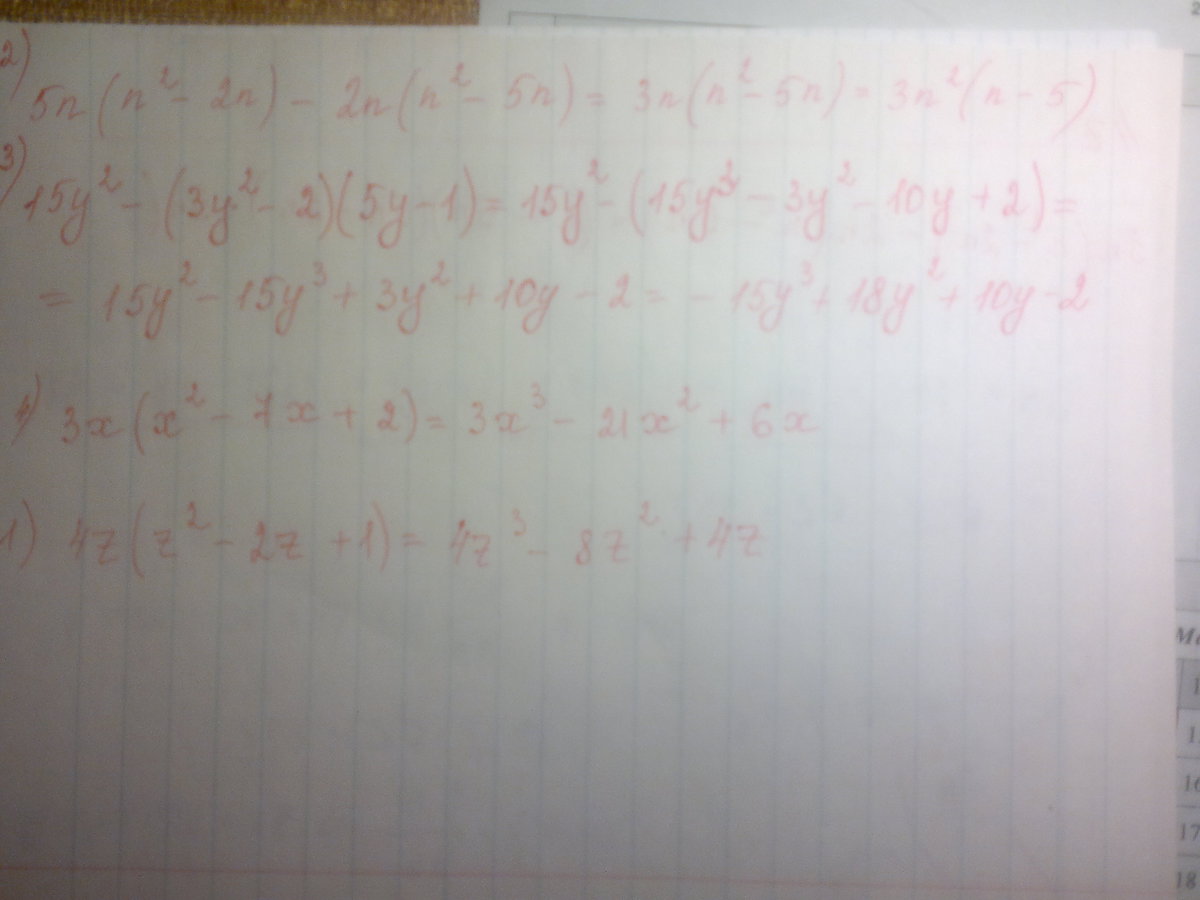 2)
5n(n² - 2n) - 2n(n² - 5n) = 3n(n² - 5n) = 3n²(n - 5)
3)
15y² - (3y² - 2)(5y - 1) = 15y² - (15y³ - 3y² - 10y + 2) =
= 15y² - 15y³ + 3y² + 10y - 2 = - 15y³ + 18y² + 10y - 2
3x(x² - 7x + 2) = 3x³ - 21x² + 6x
1) 4z(z² - 2z + 1) = 4z³ - 8z² + 4z
16
17
18